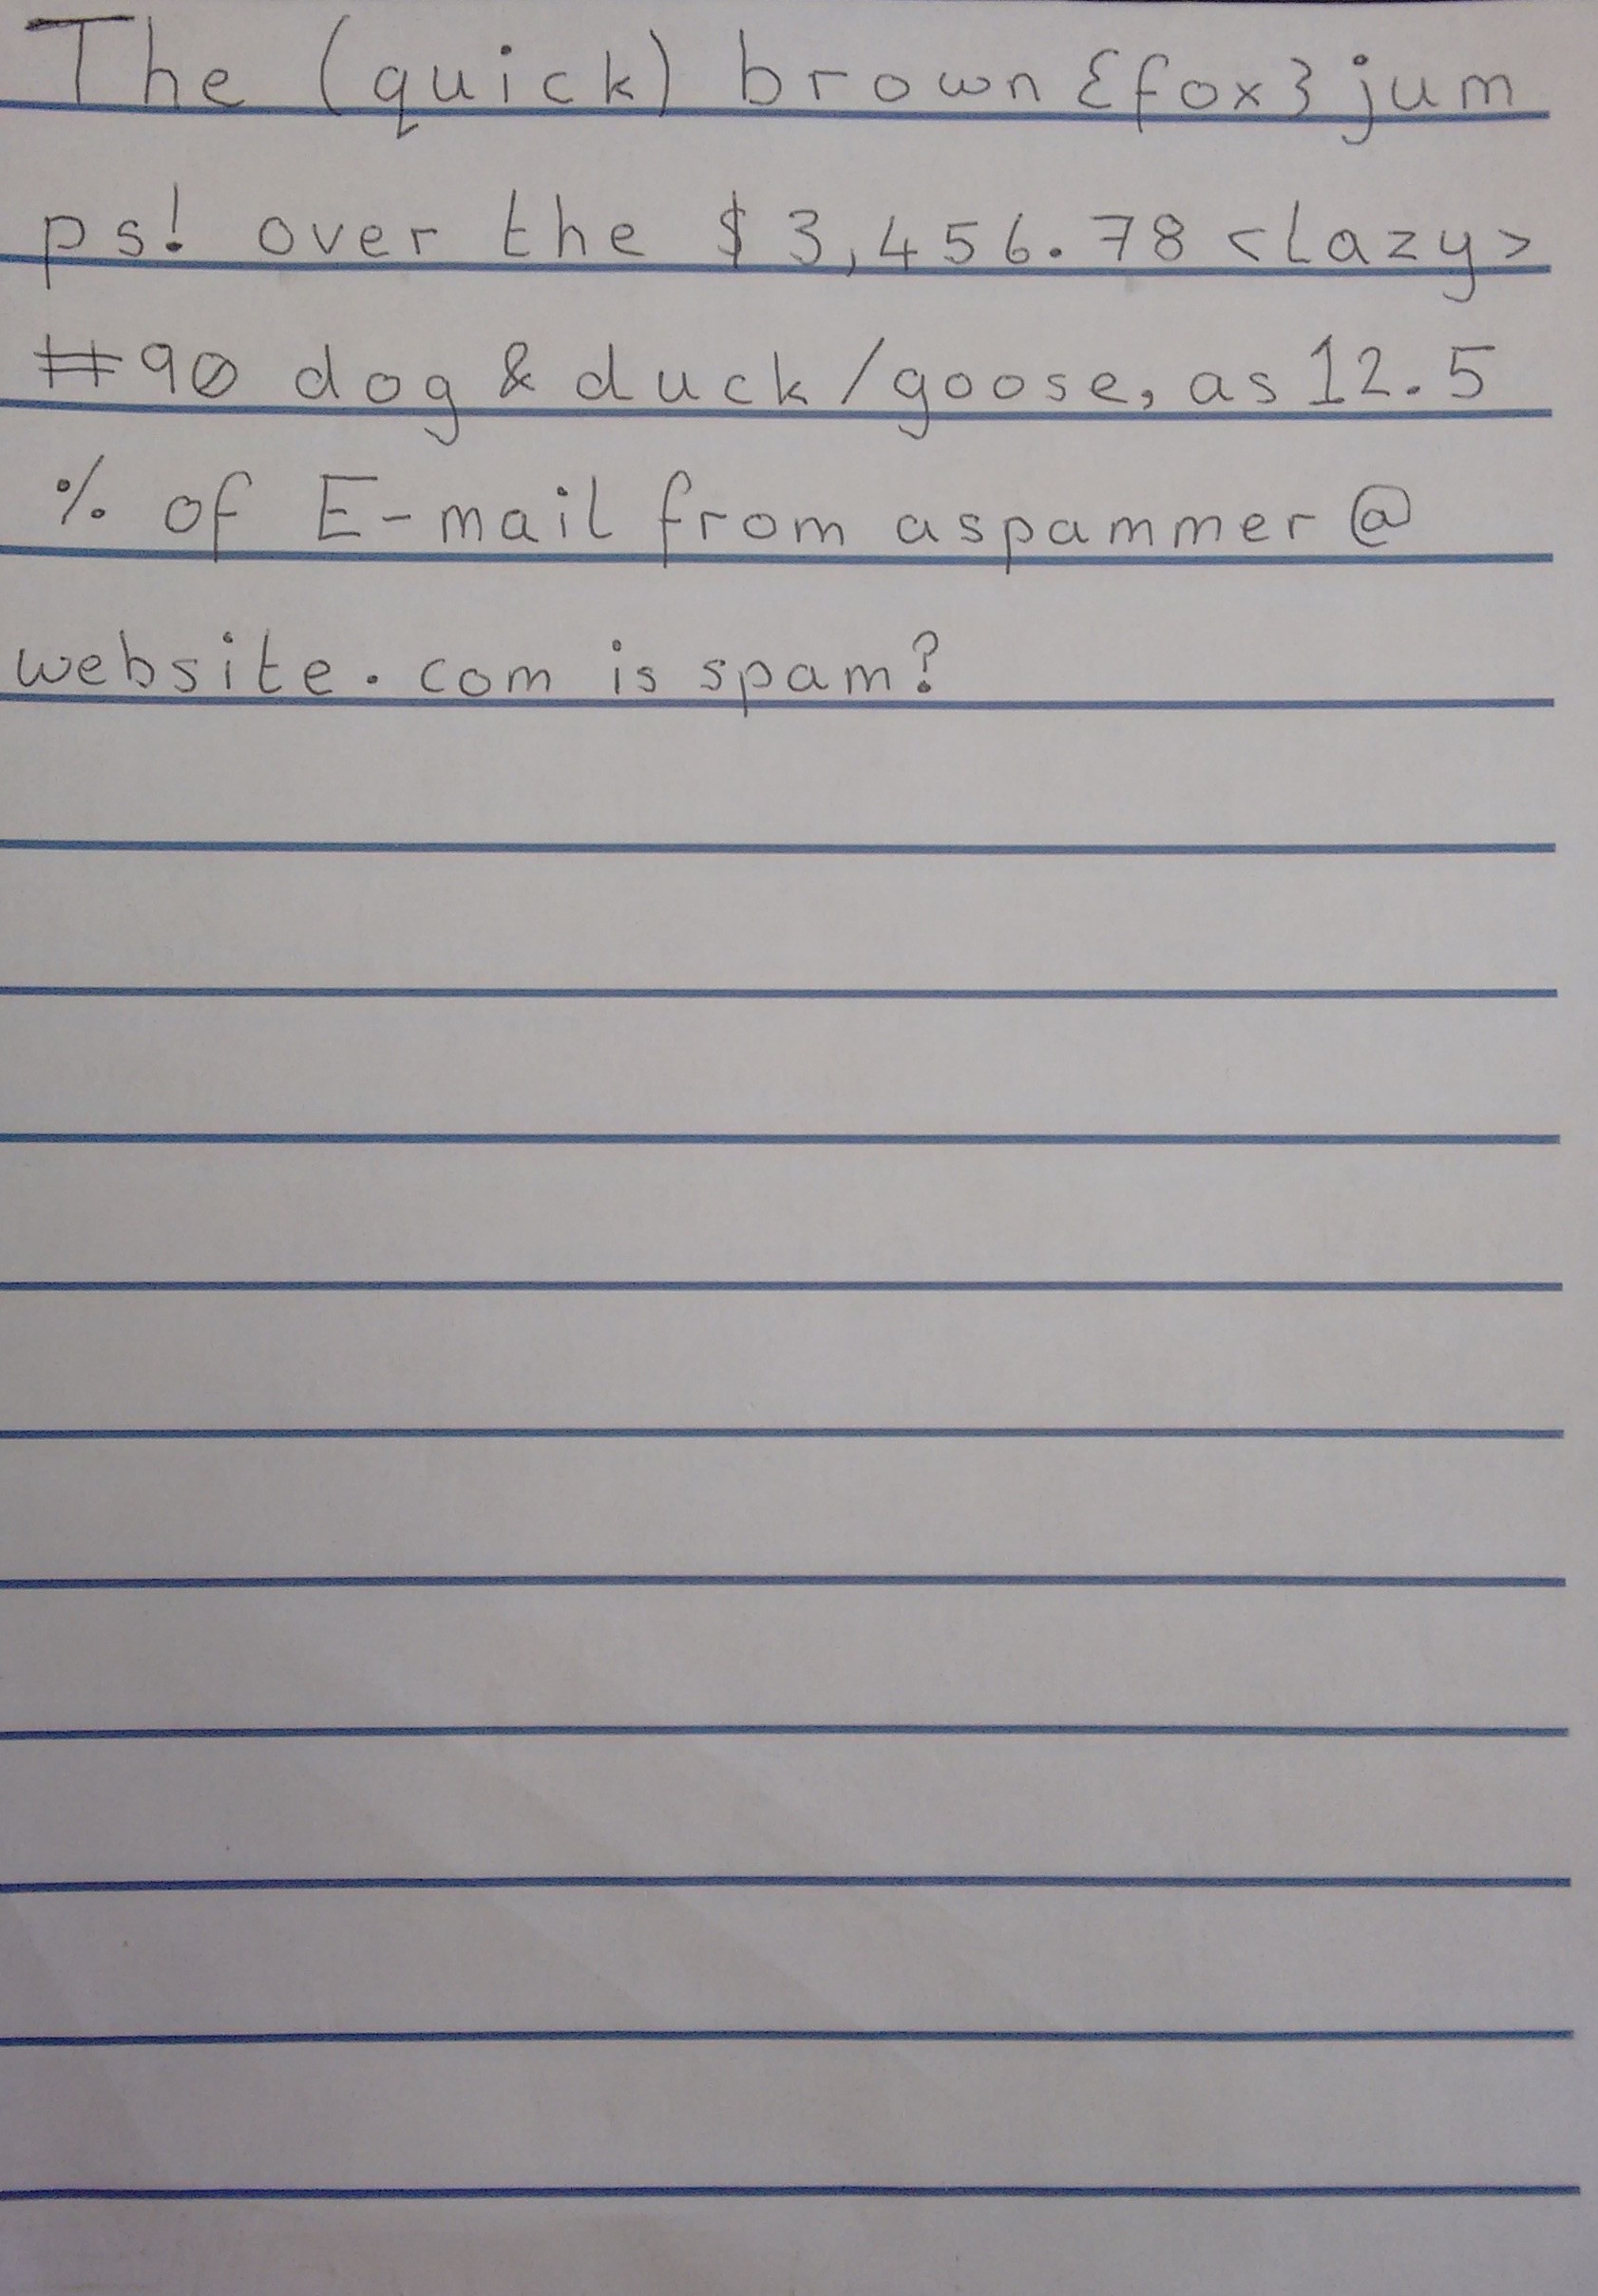 The (quick) brown {fox} jum
ps! over the $3,456.78 <lazy>
#90 dog & duck/goose, as 12.5
% of E-mail from aspammer@
website.com is spam?